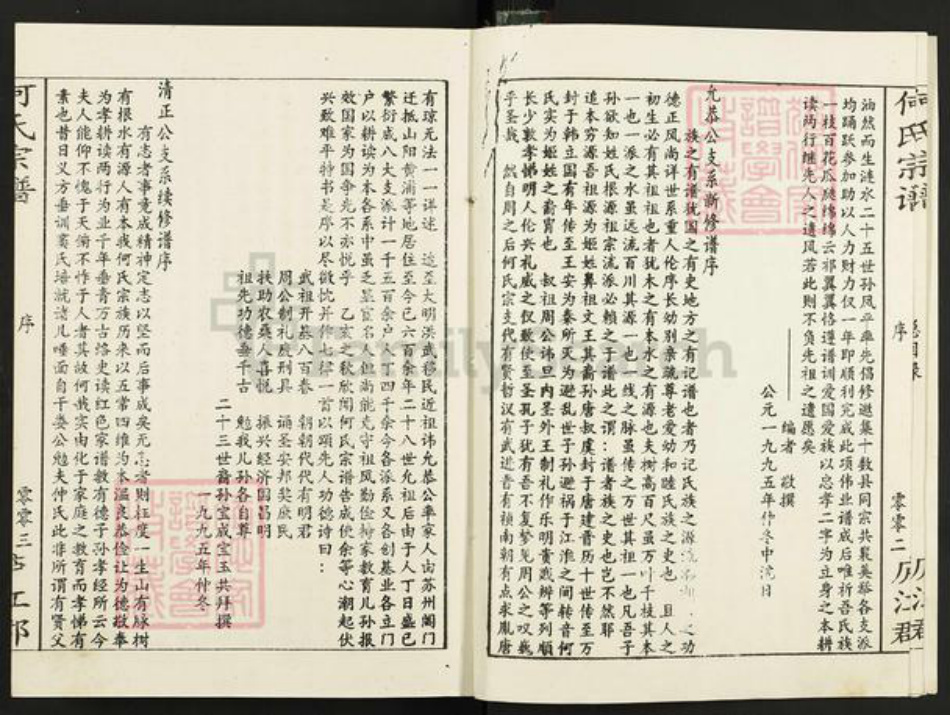 何氏宗谱
总目录
序
零零二
庐江郡
油然而生涟水二十五世孙风平率先倡修邀集十数县同宗共襄美举各支派
均踊跃参加助以人力财力仅一年即顺利完成此项伟业谱成后唯祈吾氏族
一枝百花瓜瓞绵绵云祁翼翼恪遵谱训爱国爱族以忠孝二字为立身之本耕
读两行继先人之遗风若此则不负先祖之遗愿矣
编者 敬撰
公元一九九五年仲冬中浣日
允恭公支系新修谱序
族之有谱犹国之有史地方之有记谱也者乃记氏族之源流
德正风尚详世系重人伦序长幼别亲疏尊老爱幼和睦氏族之史也 且人之
初生必有其祖也者犹木之有本水之有源也夫树高百尺虽万叶千枝其本
一也一派之水虽远流百川其源一也一线之脉虽传之万世其祖一也凡吾子
孙欲知姓氏根源祖宗流派必赖之于谱此之谓：谱者族之史也岂不然耶
追本穷源吾祖源为姬姓鼻祖文王其裔孙唐叔虞封于唐建晋历十世传至万
封于韩立国有年传至王安为秦所灭为避乱世子孙避祸于江淮之间转音何
氏实为姬姓之裔胄也 叔祖周公讳旦内圣外王制礼作乐明贵贱辨等列顺
长少敦孝悌明人伦兴礼威之仪敬使至圣孔子犹有吾不复梦见周公之叹巍
乎圣哉 然自周之后何氏宗支代有贤哲汉有武进晋有祯南朝有点求胤唐
有琼元法一一详述 迨至大明洪武移民近祖讳允恭公率家人由苏州阊门
迁抵山阳黄浦等地居住至今已六百余年二十八世允祖后由于人丁日盛已
繁衍成八大支派计一千五百余户人丁四千余今各派系又各创基业各立门
户以耕读为本各系中虽乏显宦名人但尚能克守祖风勤俭持家教育儿孙报
效国家为国争先不亦悦乎 乙亥之秋欣闻何氏宗谱告成使余等心潮起伏
兴歎难平特书是序以尽微忱并作七律一首以颂先人功德诗曰：
武祖开基八百春 朝朝代代有明君
周公制礼度刑具 诵圣安邦奖庶民
扶助农桑人喜悦 振兴经济国昌明
祖先功德垂千古 勉我儿孙各自尊
二十三世裔孙宝成宝玉共拜撰
一九九五年仲冬
清正公支系续修谱序
有志者事竟成精神定志以坚而后事成矣无志者则枉度一生山有脉树
有根水有源人有本我何氏宗族历来以五常四维为本温良恭俭让为德敬奉
为孝耕读两行为业千年垂青万古烙史读红色家谱教有德子孙孝经所云今
夫人能仰不愧于天俯不怍于人者其故何哉实由化于家庭之教育而孝悌有
素也昔日义方垂训窦氏培就诸儿唾面自干娄公勉夫仲氏此非所谓有贤父
何氏宗谱
序
零零三
庐江郡